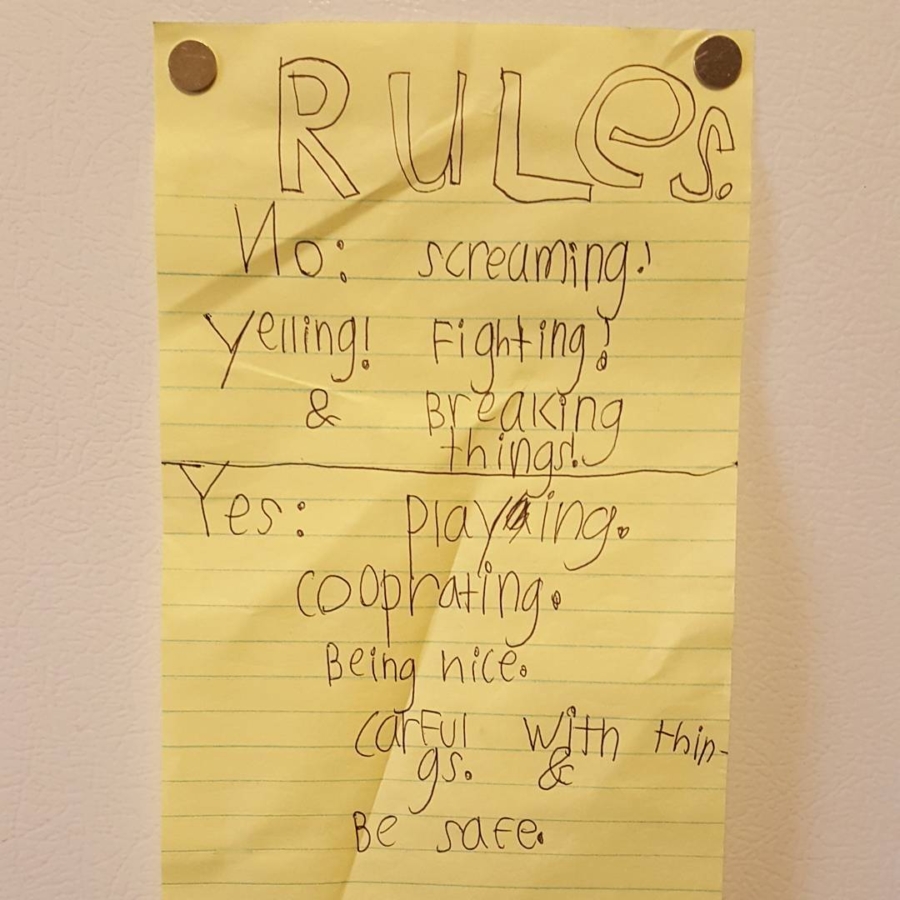 RULes.
No: screaming!
Yelling! Fighting!
& Breaking
things!
Yes: playing.
cooprating.
Being nice.
carFul with thin-
gs. &
Be safe.